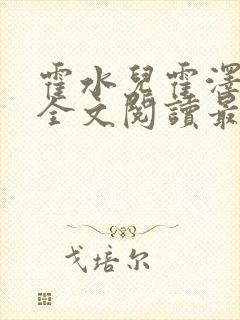 霍水兒霍澤
全文閱讀最
戈培尔